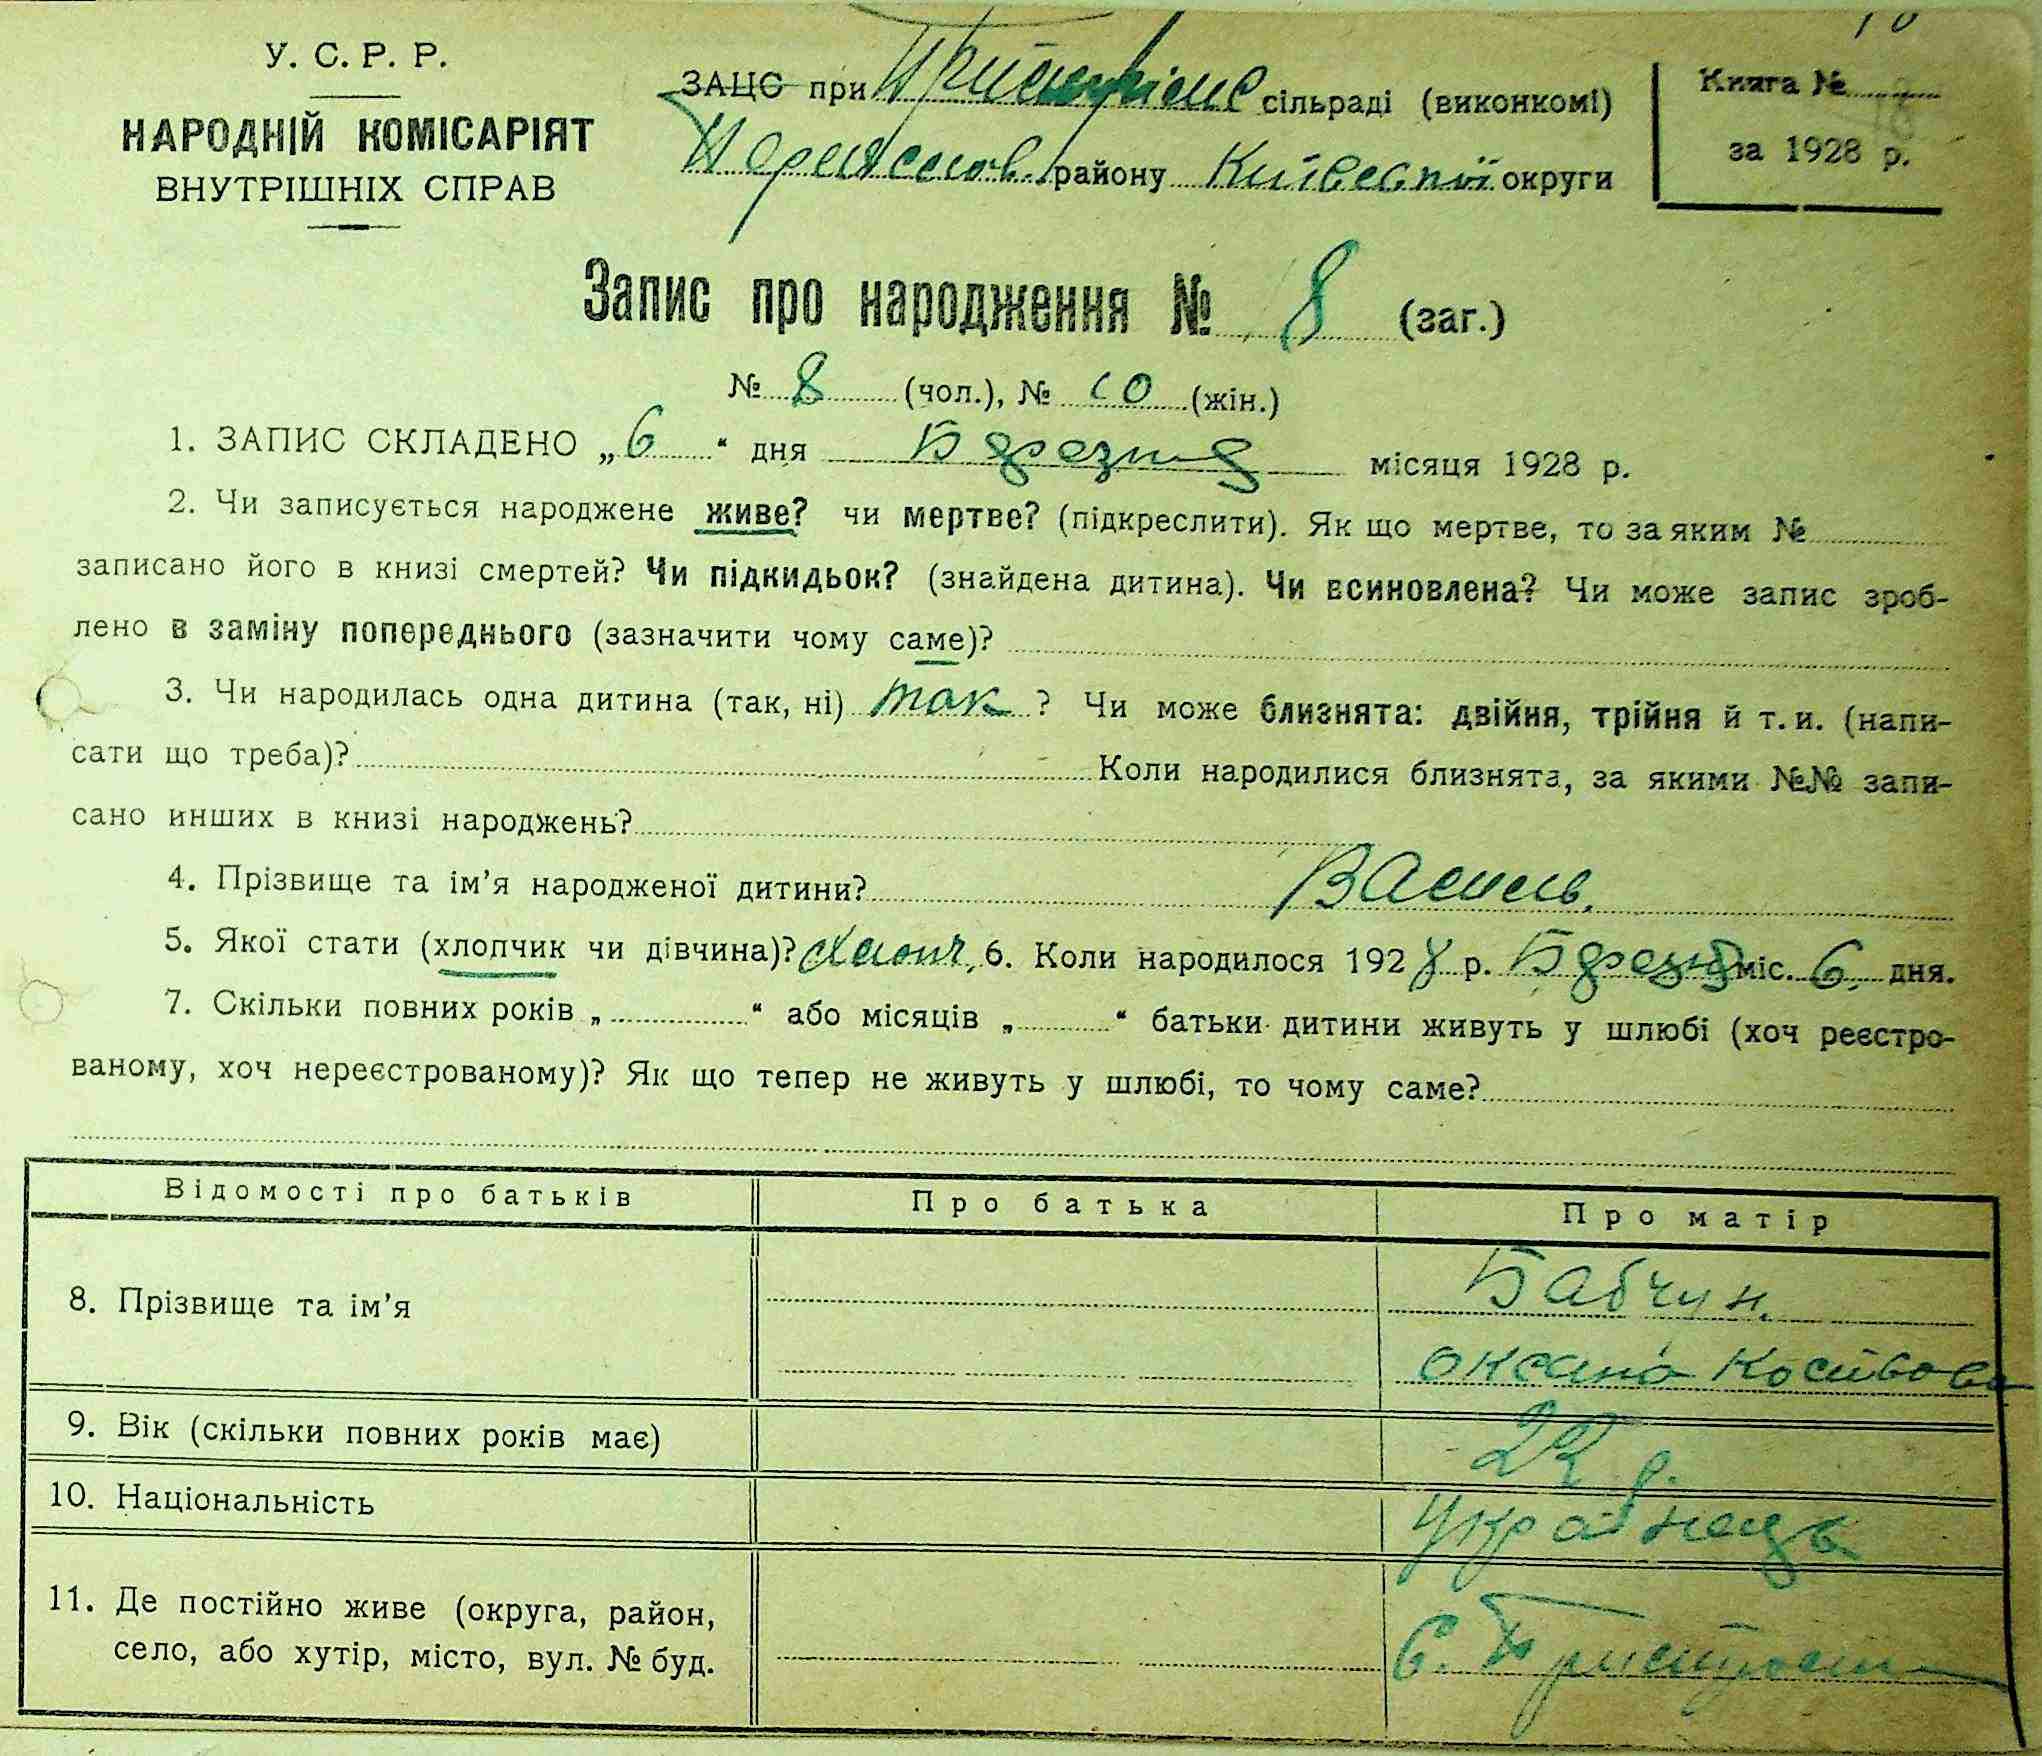 10
У. С. Р. Р.
НАРОДНІЙ КОМІСАРІЯТ
ВНУТРІШНІХ СПРАВ
ЗАЦС при сільраді (виконкомі)
району Київської округи
Книга №
за 1928 р.
Запис про народження № 8 (заг.)
№ 8 (чол.), № 10 (жін.)
1. ЗАПИС СКЛАДЕНО „6“ дня Березня місяця 1928 р.
2. Чи записується народжене живе? чи мертве? (підкреслити). Як що мертве, то за яким №
записано його в книзі смертей? Чи підкидьок? (знайдена дитина). Чи всиновлена? Чи може запис зроб-
лено в заміну попереднього (зазначити чому саме)?
3. Чи народилась одна дитина (так, ні) так ? Чи може близнята: двійня, трійня й т. и. (напи-
сати що треба)? Коли народилися близнята, за якими №№ запи-
сано инших в книзі народжень?
4. Прізвище та ім’я народженої дитини? Василь.
5. Якої стати (хлопчик чи дівчина)? Хлопч. 6. Коли народилося 1928 р. Березня міс. 6. дня.
7. Скільки повних років „ “ або місяців „ “ батьки дитини живуть у шлюбі (хоч реєстро-
ваному, хоч нереєстрованому)? Як що тепер не живуть у шлюбі, то чому саме?
Відомості про батьків Про батька Про матір
8. Прізвище та ім’я Бабчун.
Оксана
9. Вік (скільки повних років має) р.
10. Національність Українець
11. Де постійно живе (округа, район,
село, або хутір, місто, вул. № буд. С.